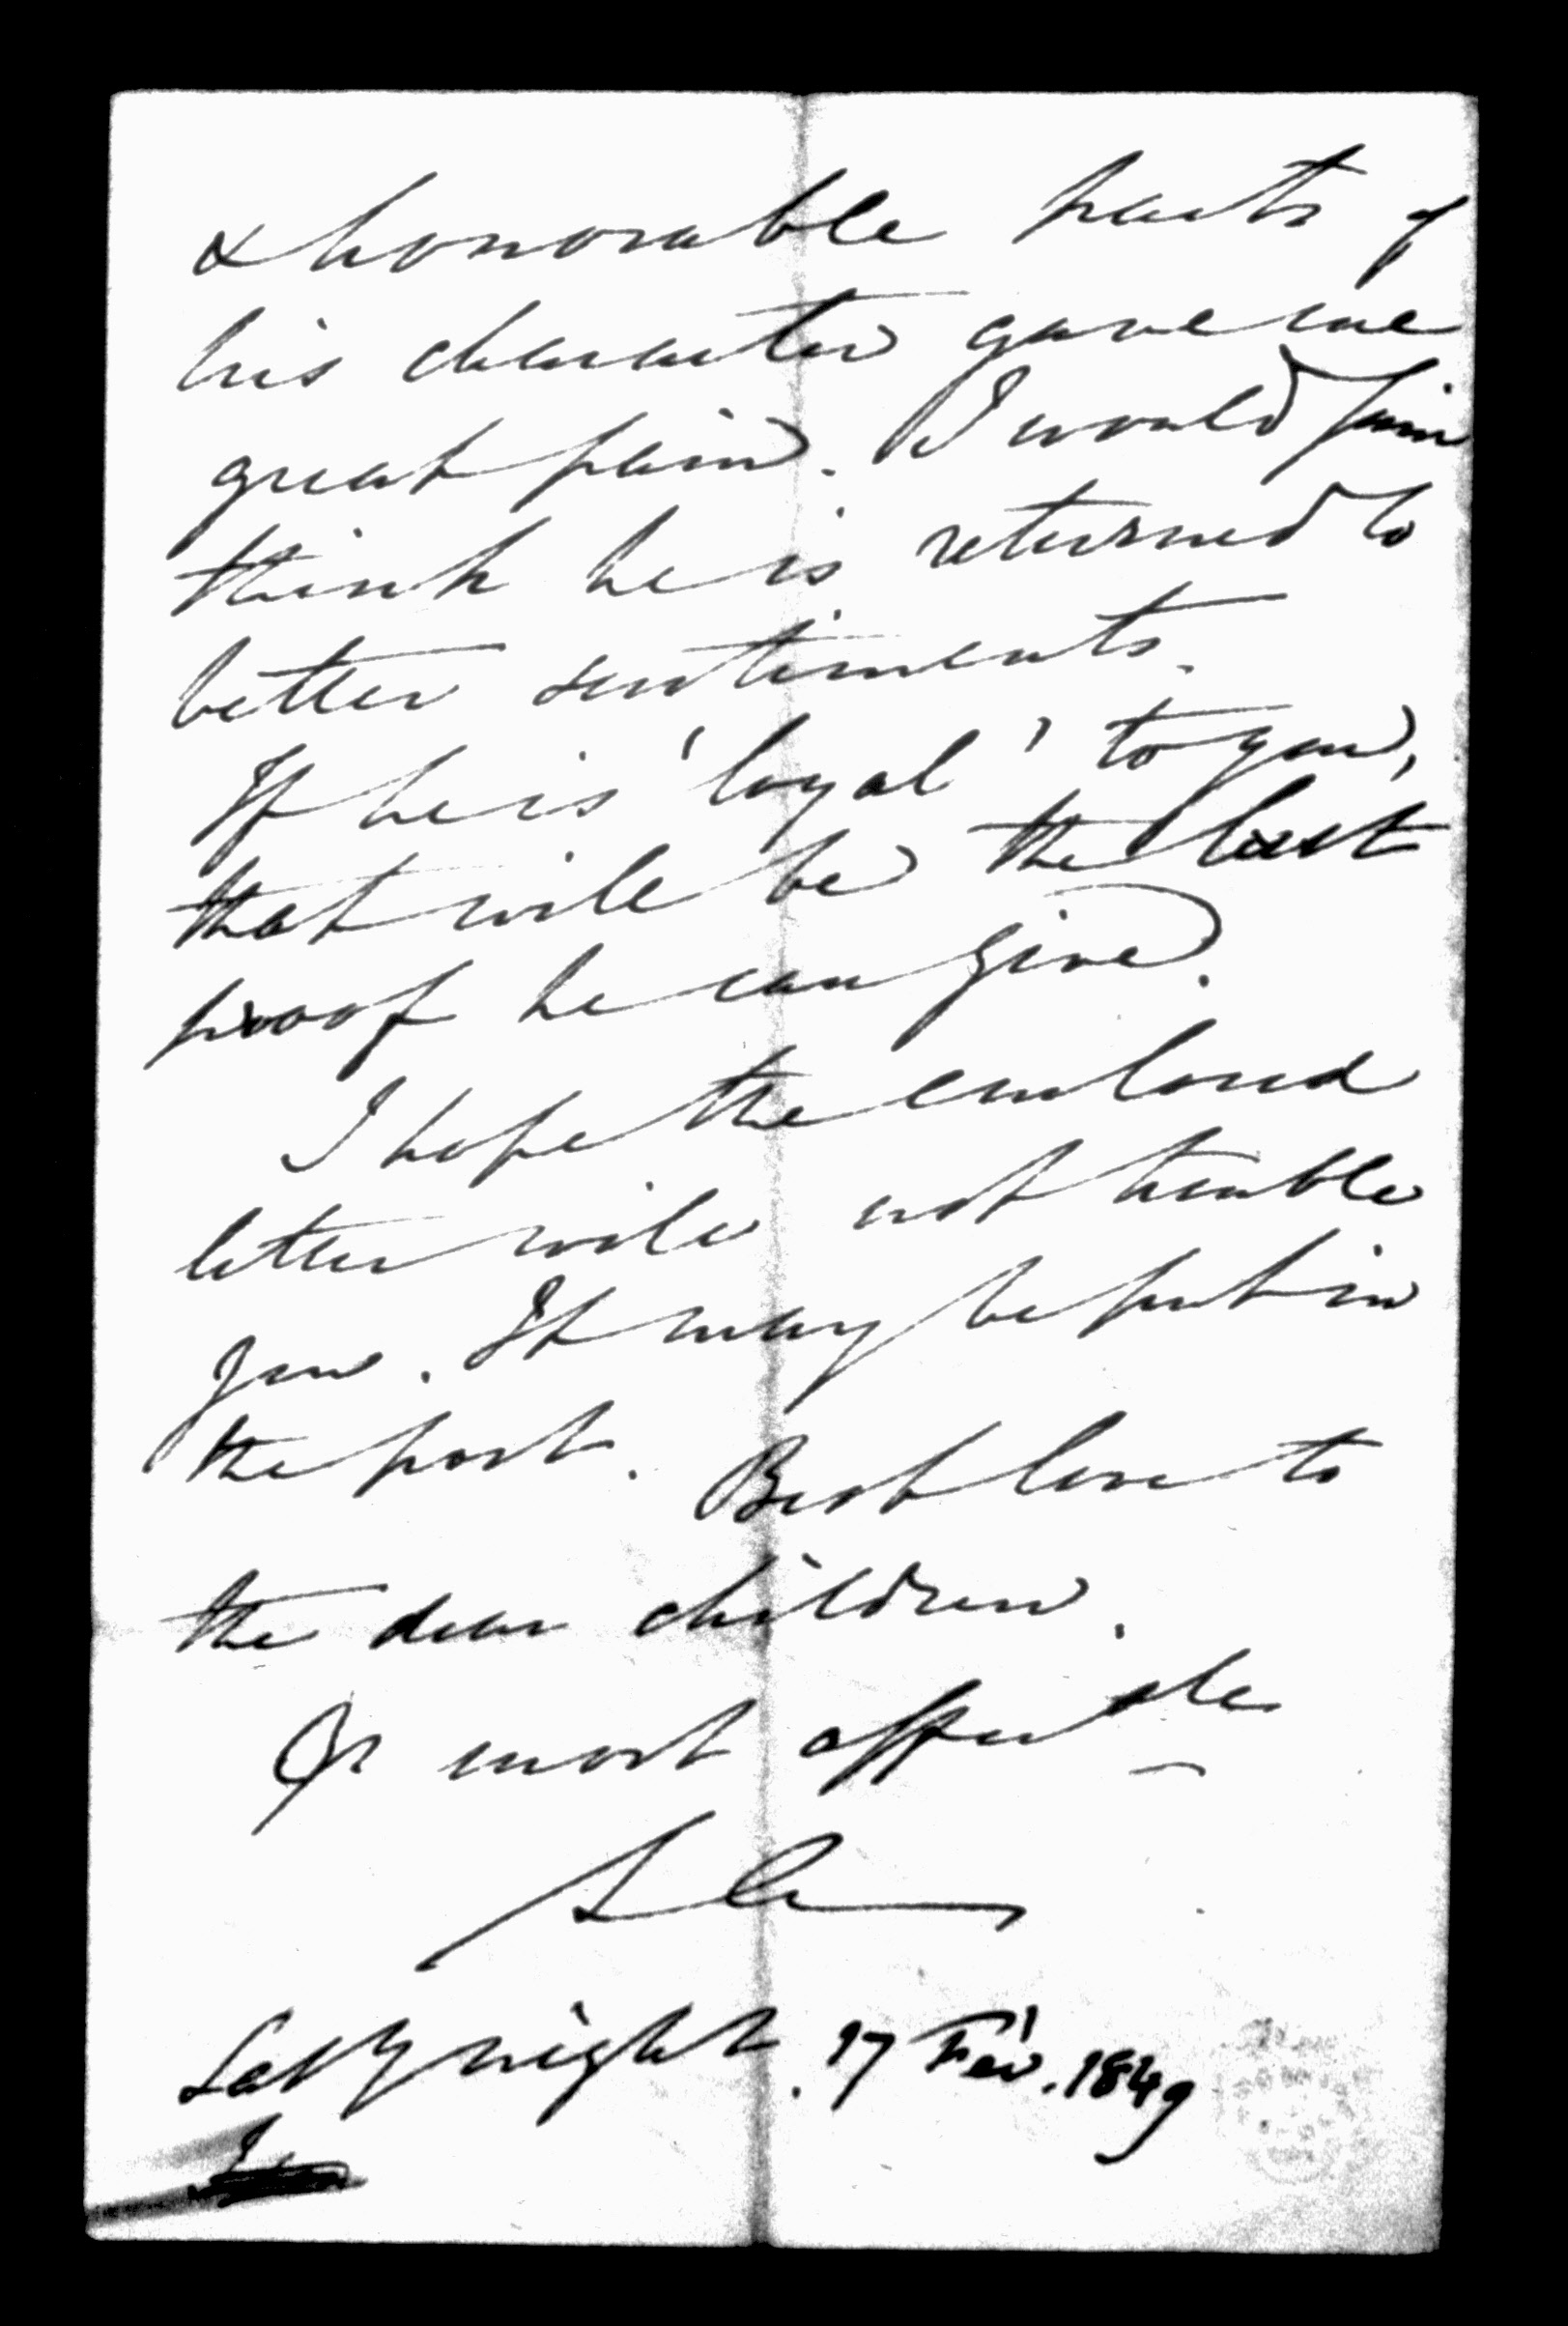 & honorable parts of
his character gave me
great pain. I would fain
think he is returned to
better sentiments.
If he is 'loyal' to you,
that will be the best
proof he can give.
I hope the enclosed
letter will not trouble
you. It may be put in
the post. Best love to
the dear children.
Yr most affectate
Saty night. 17 Fév. 1849